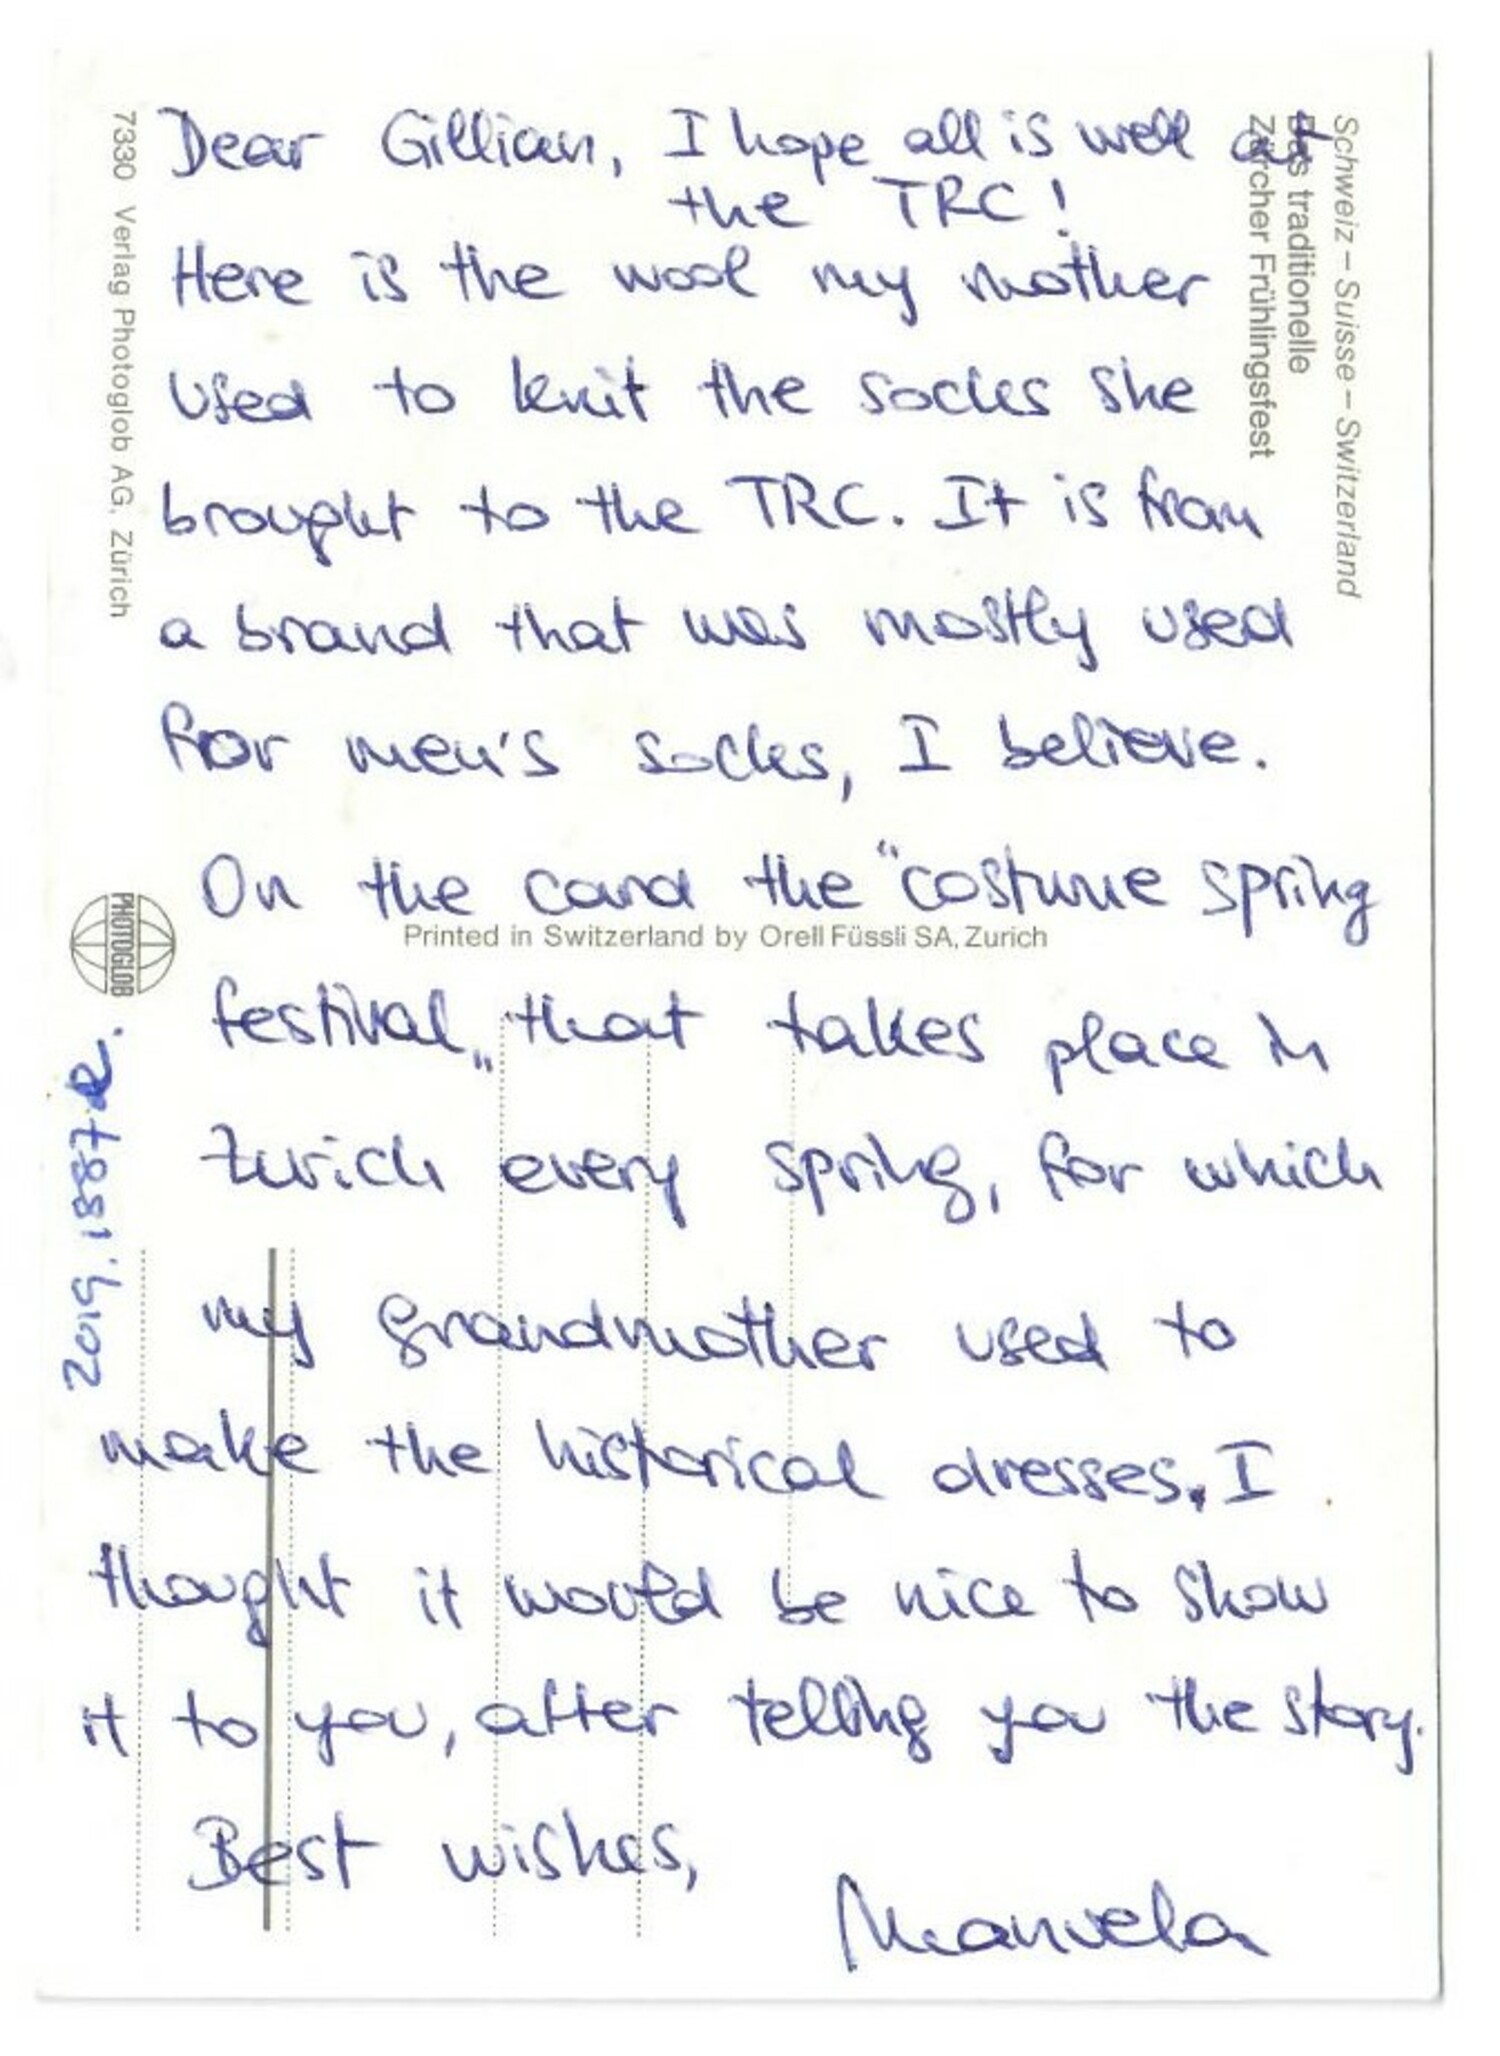 Dear Gillian, I hope all is well at
the TRC!
Here is the wool my mother
used to knit the socks she
brought to the TRC. It is from
a brand that was mostly used
for men's socks, I believe.
On the card the "costume spring
festival" that takes place in
Zurich every spring, for which
my grandmother used to
make the historical dresses. I
thought it would be nice to show
it to you, after telling you the story.
Best wishes,
Manuela
Schweiz – Suisse – Switzerland
Das traditionelle
Zürcher Frühlingsfest
7330 Verlag Photoglob AG, Zürich
PHOTOGLOB
Printed in Switzerland by Orell Füssli SA, Zurich
2019.1887d.